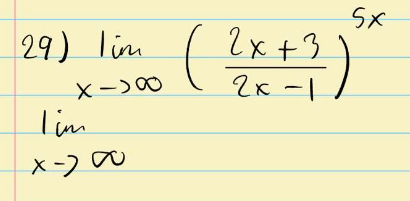 29) lim x->∞ ( (2x+3)/(2x-1) )^5x
lim
x->∞